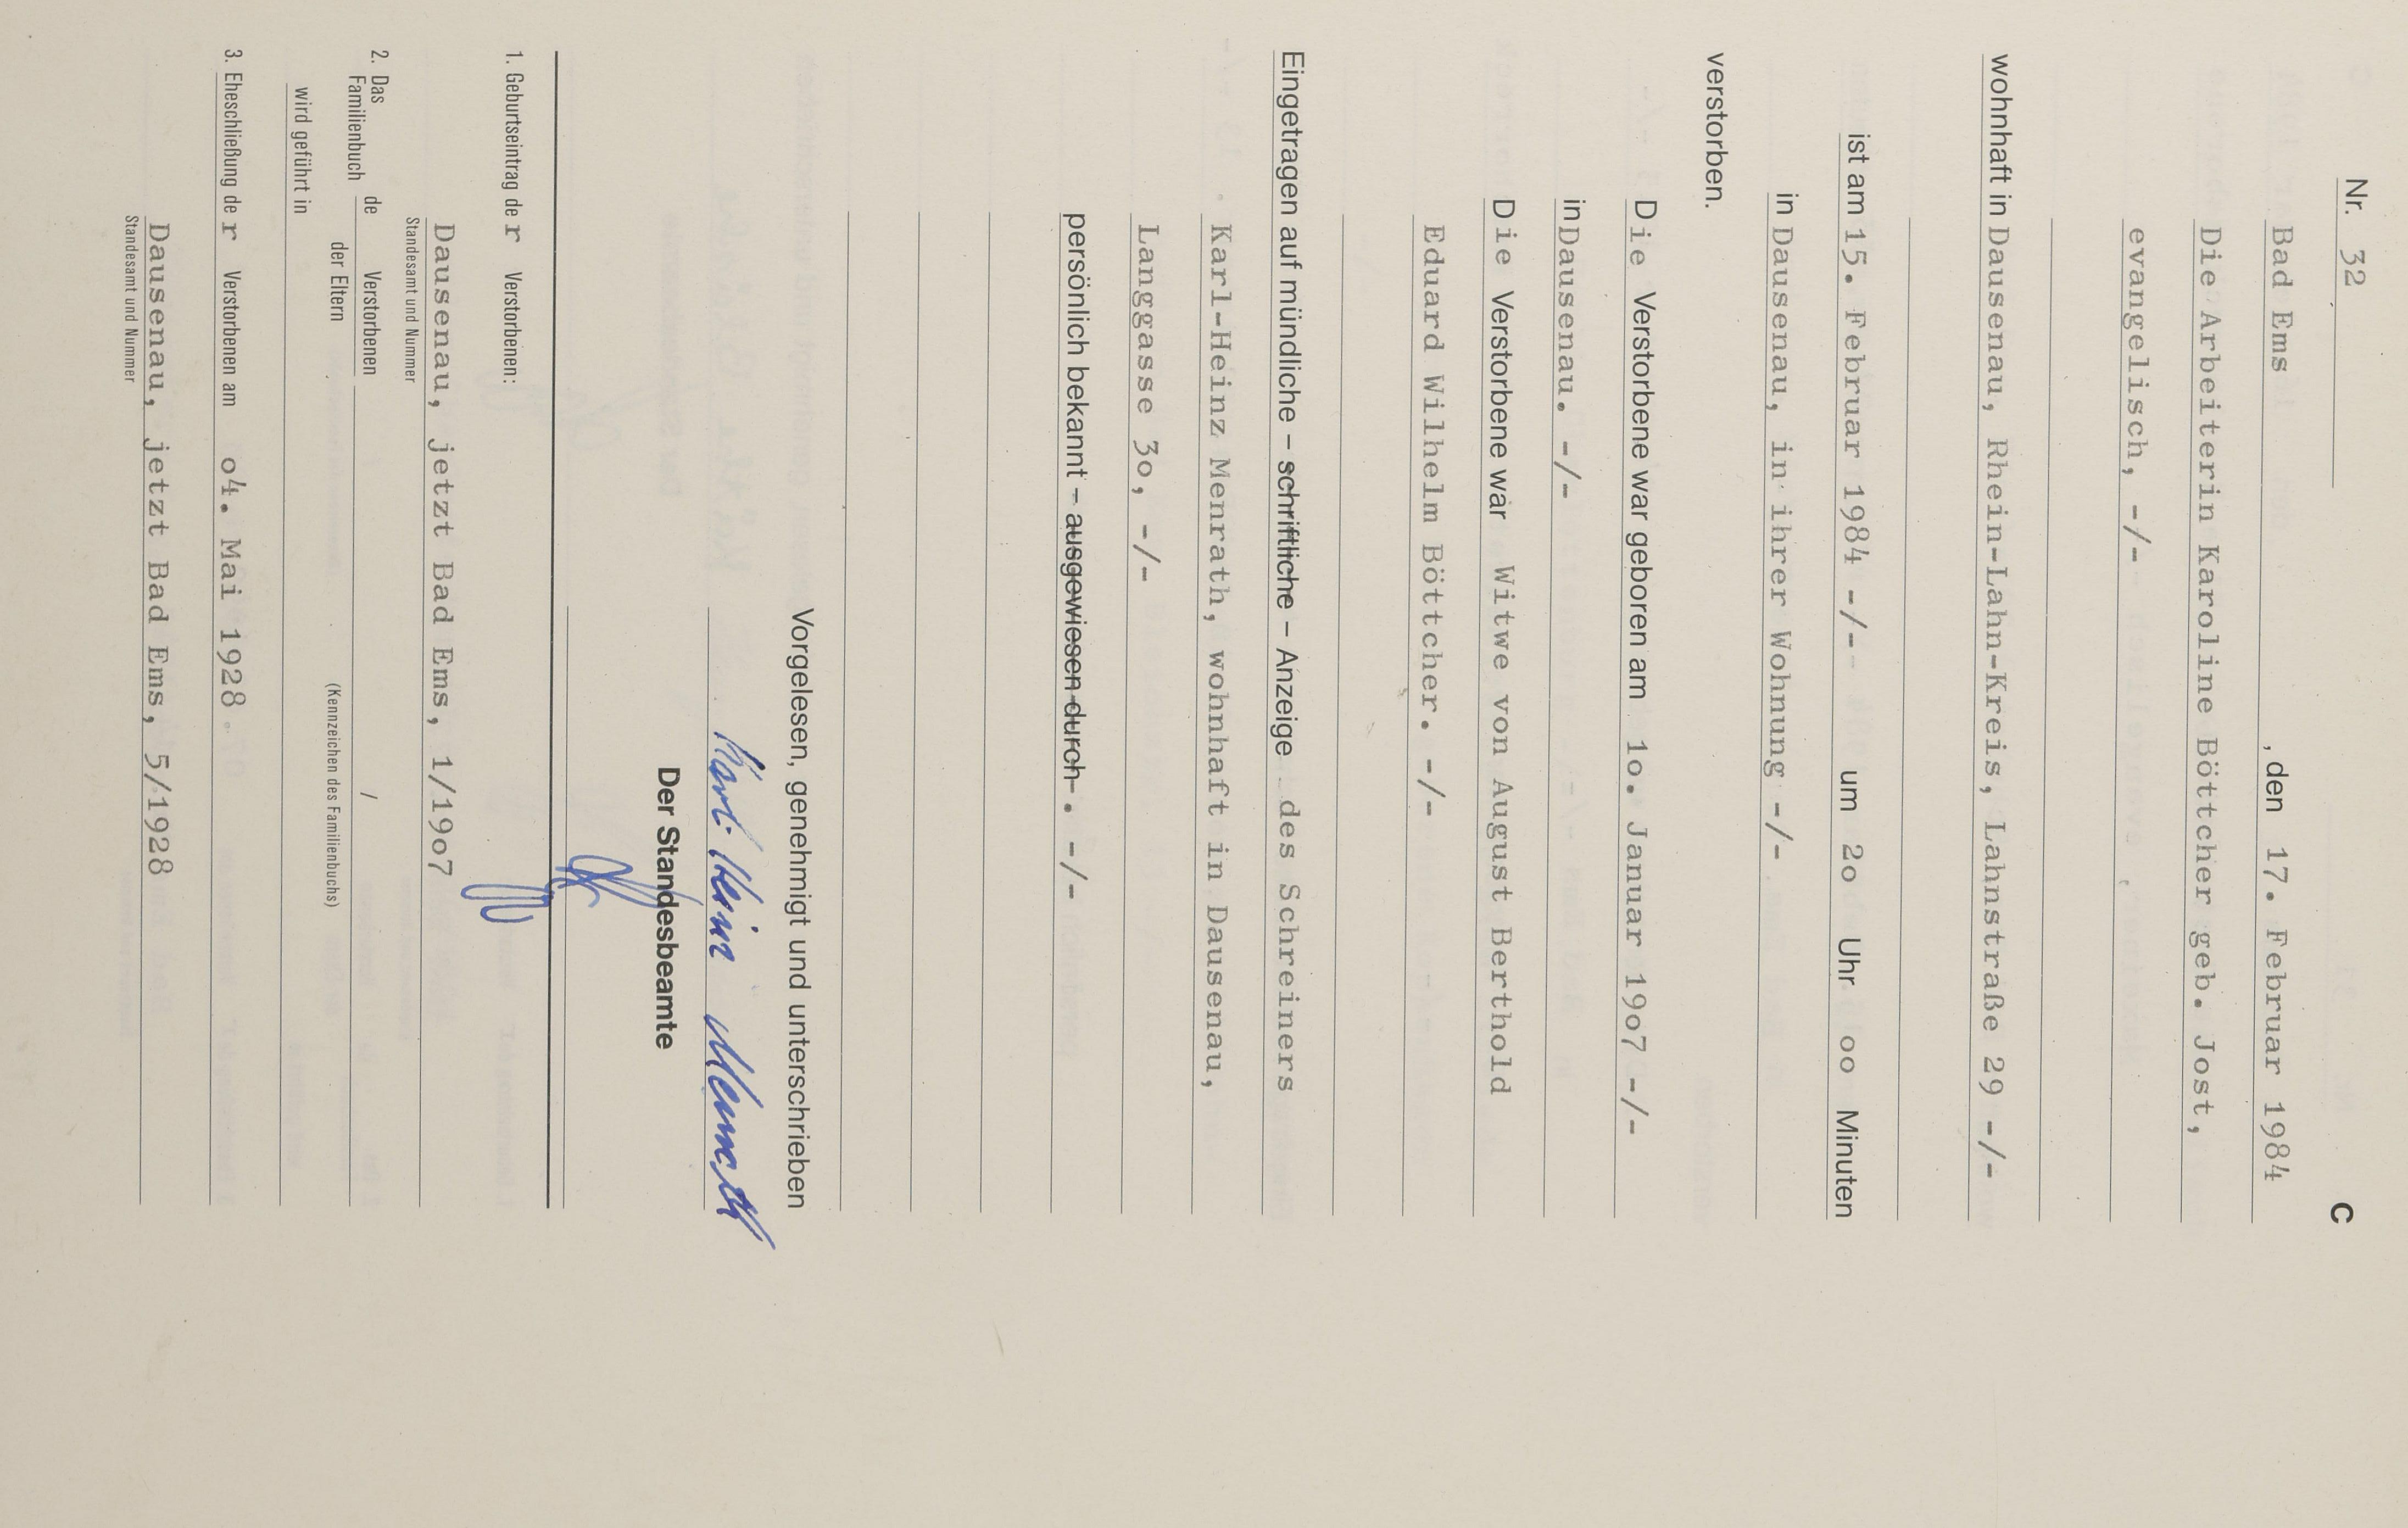 C
Nr. 32
Bad Ems , den 17. Februar 1984
Die Arbeiterin Karoline Böttcher geb. Jost,
evangelisch, -/-
wohnhaft in Dausenau, Rhein-Lahn-Kreis, Lahnstraße 29 -/-
ist am 15. Februar 1984 -/- um 2o Uhr oo Minuten
in Dausenau, in ihrer Wohnung -/-
verstorben.
Die Verstorbene war geboren am 1o. Januar 19o7 -/-
in Dausenau. -/-
Die Verstorbene war Witwe von August Berthold
Eduard Wilhelm Böttcher. -/-
Eingetragen auf mündliche – schriftliche – Anzeige des Schreiners
Karl-Heinz Menrath, wohnhaft in Dausenau,
Langgasse 3o, -/-
persönlich bekannt – ausgewiesen durch-. -/-
Vorgelesen, genehmigt und unterschrieben
Karl-Heinz Menrath
Der Standesbeamte
1. Geburtseintrag der Verstorbenen:
Dausenau, jetzt Bad Ems, 1/19o7
Standesamt und Nummer
2. Das Familienbuch de Verstorbenen /
der Eltern
(Kennzeichen des Familienbuchs)
wird geführt in
3. Eheschließung der Verstorbenen am o4. Mai 1928
Dausenau, jetzt Bad Ems, 5/1928
Standesamt und Nummer